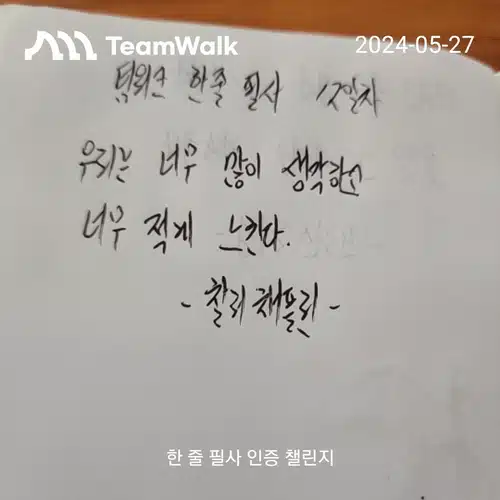 TeamWalk
2024-05-27
팀워크 한줄 필사 12일차
우리는 너무 많이 생각하고
너무 적게 느낀다.
- 찰리 채플린 -
한 줄 필사 인증 챌린지